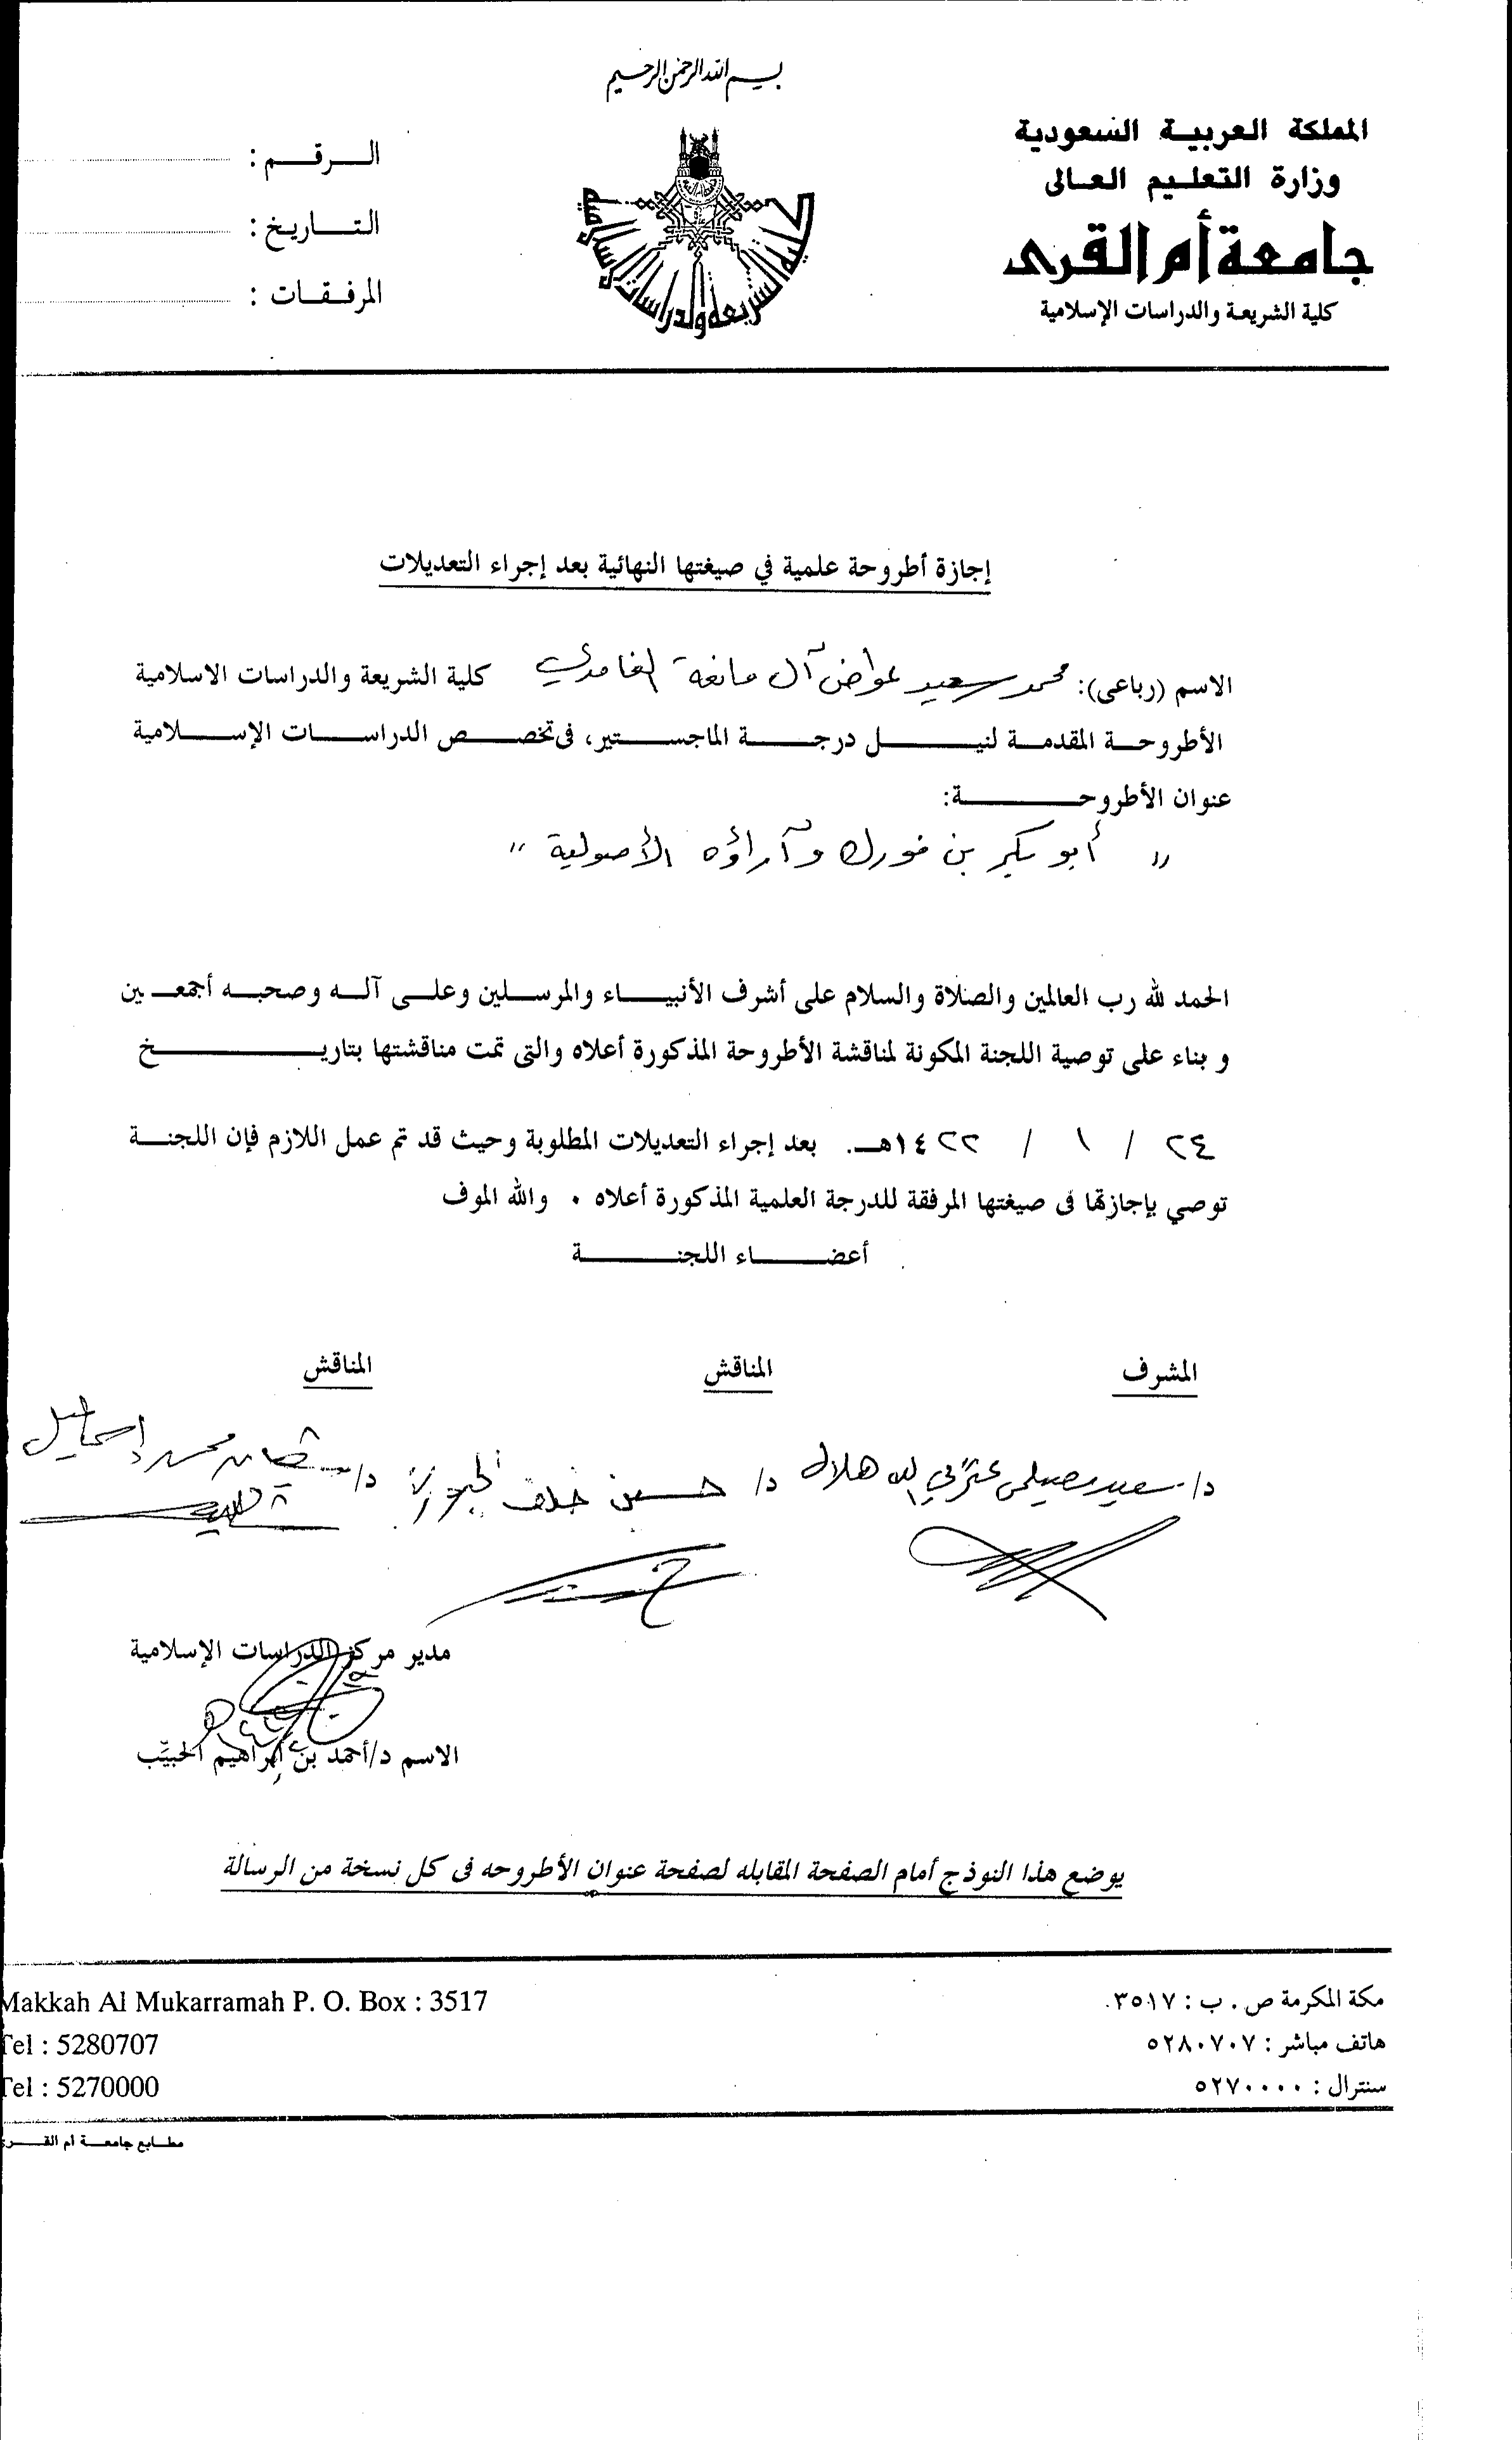 بسم الله الرحمن الرحيم
المملكة العربية السعودية
وزارة التعليم العالى
جامعة أم القرى
كلية الشريعة والدراسات الإسلامية
كلية الشريعة والدراسات الإسلامية
الرقم :
التاريخ :
المرفقات :
إجازة أطروحة علمية في صيغتها النهائية بعد إجراء التعديلات
الاسم (رباعى): محمد سعيد عواض آل مانعة الغامدي كلية الشريعة والدراسات الاسلامية
الأطروحة المقدمة لنيل درجة الماجستير، فى تخصص الدراسات الإسلامية
عنوان الأطروحة:
" أبو بكر بن فورك وآراؤه الأصولية "
الحمد لله رب العالمين والصلاة والسلام على أشرف الأنبياء والمرسلين وعلى آله وصحبه أجمعين
و بناء على توصية اللجنة المكونة لمناقشة الأطروحة المذكورة أعلاه والتى تمت مناقشتها بتاريخ
٢٤ / ١ / ١٤٢٢هـ. بعد إجراء التعديلات المطلوبة وحيث قد تم عمل اللازم فإن اللجنة
توصي بإجازتها فى صيغتها المرفقة للدرجة العلمية المذكورة أعلاه . والله الموف
أعضاء اللجنة
المشرف المناقش المناقش
د/ سعيد مصيلحى هلال د/ حسين خلف الجبوري د/ شعبان محمد إسماعيل
مدير مركز الدراسات الإسلامية
الاسم د/أحمد بن إبراهيم الحبيّب
يوضع هذا النوذج أمام الصفحة المقابله لصفحة عنوان الأطروحه فى كل نسخة من الرسالة
مكة المكرمة ص . ب : ٣٥١٧.
هاتف مباشر : ٥٢٨٠٧٠٧
سنترال : ٥٢٧٠٠٠٠
Makkah Al Mukarramah P. O. Box : 3517
Tel : 5280707
Tel : 5270000
مطابع جامعة أم القرى